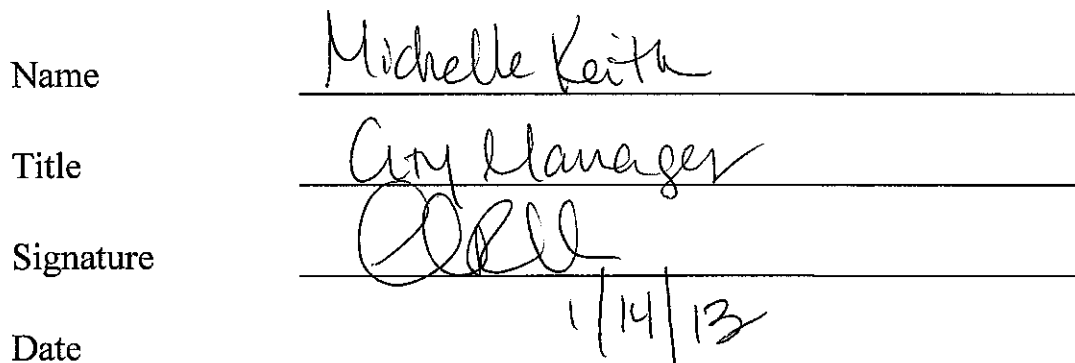 Name Michelle Keith
Title City Manager
Signature
Date 1/14/13